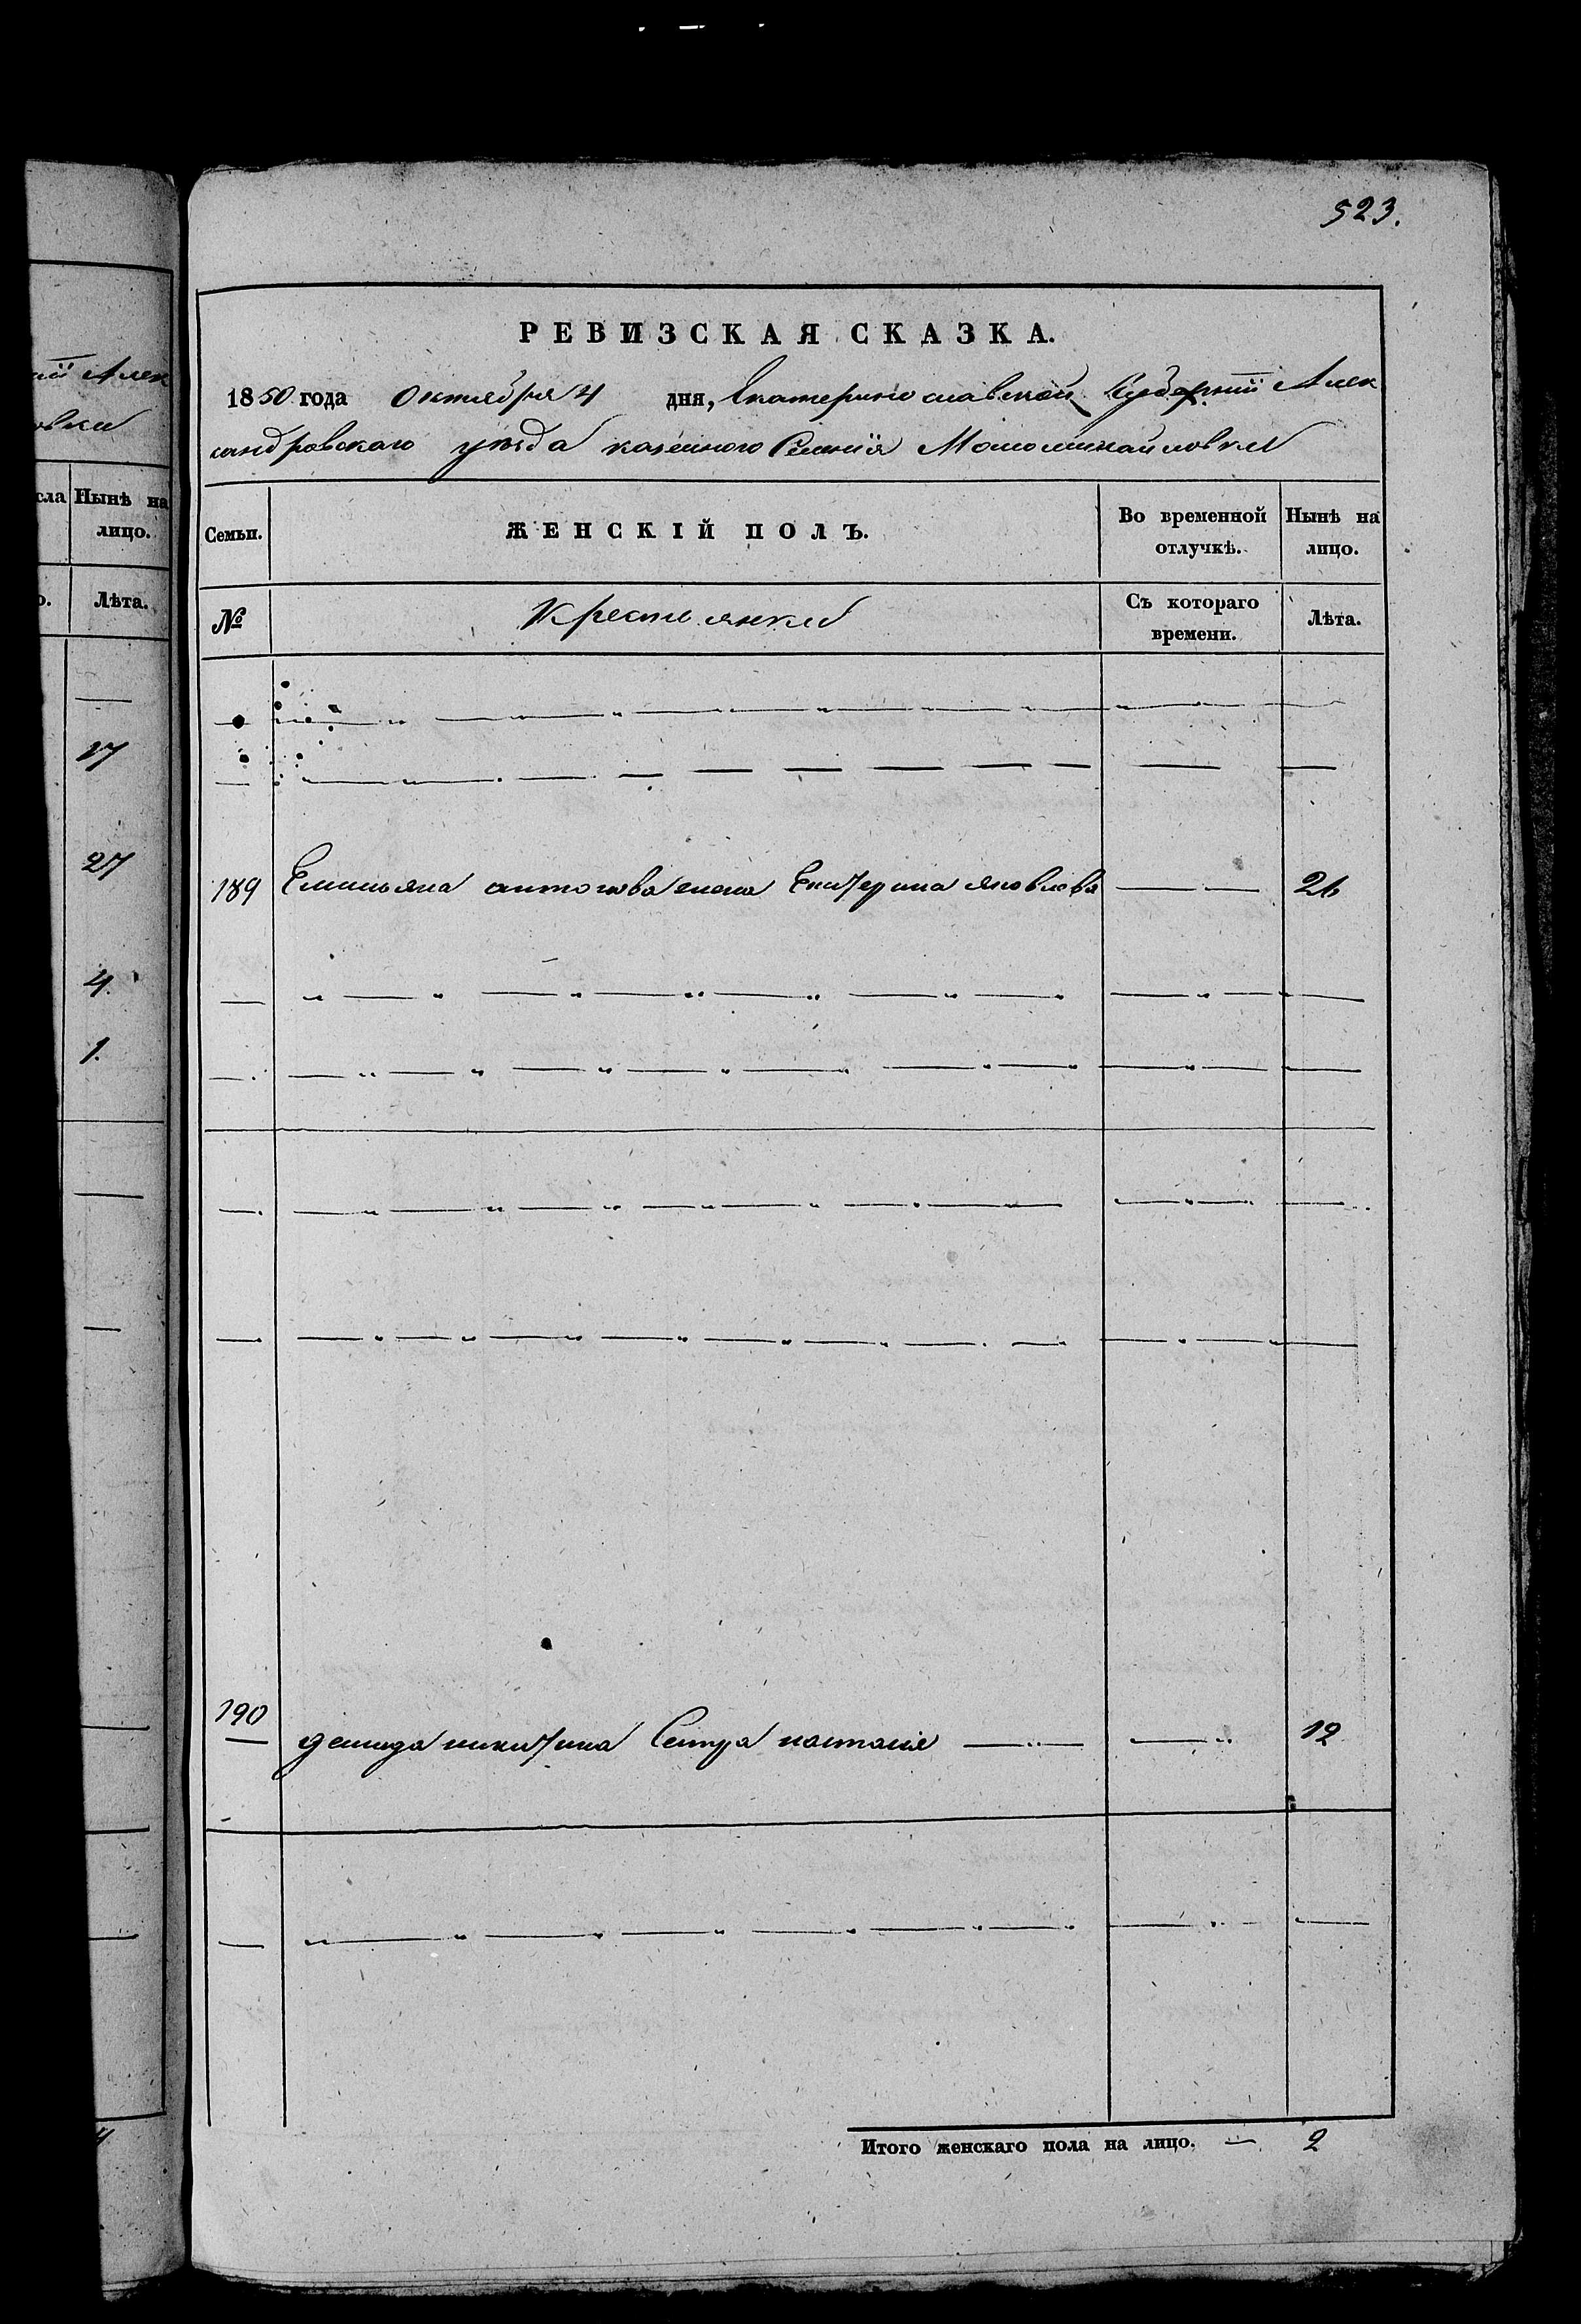 ій Алек
овки
сла Нынѣ на
лицо.
о. Лѣта.
17
27
4.
1.
523.
РЕВИЗСКАЯ СКАЗКА.
1850 года Октября 4 дня, Екатеринославской Губерніи Алек
сандровскаго уѣзда казенного Селенія Маломихайловки
Семьи. ЖЕНСКІЙ ПОЛЪ. Во временной отлучкѣ. Нынѣ на лицо.
№ Крестьянки Съ котораго времени. Лѣта.
189 Емильяна антонова жена Екатерина яковлева 26
190 демида никитина Сестра настасія 12
Итого женскаго пола на лицо. — 2